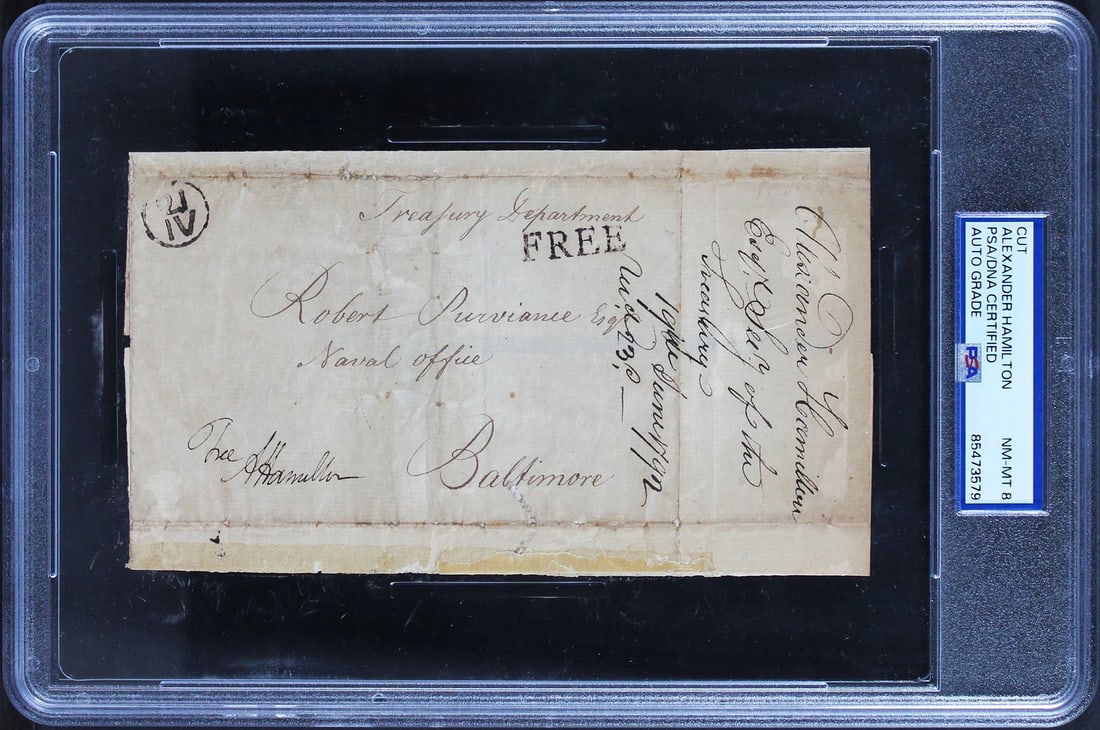 Treasury Department
FREE
Robert Purviance Esqr
Naval Office
Baltimore
Free
AHamilton
Alexander Hamilton
Esqr. Secy of the
Treasury
19th June 1792
23,
CUT
ALEXANDER HAMILTON
PSA/DNA CERTIFIED
AUTO GRADE
NM-MT 8
85473579
PSA